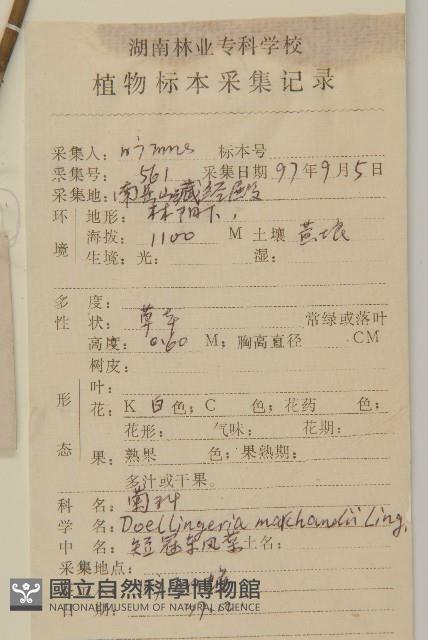 湖南林业专科学校
植物标本采集记录
采集人: 标本号
采集号: 561 采集日期 97年9月5日
采集地: 南岳山藏经殿
环境 地形: 林阴下,
海拔: 1100 M 土壤 黄壤
生境: 光: 湿:
多度:
性状: 草本 常绿或落叶
高度: 0.60 M; 胸高直径 CM
树皮:
形态 叶:
花: K 白色; C 色; 花药 色;
花形: 气味: 花期:
果: 熟果 色; 果熟期:
多汁或干果。
科名: 菊科
学名: Doellingeria marchandii Ling,
中名: 短冠东风菜 土名:
采集地点:
國立自然科學博物館
NATIONAL MUSEUM OF NATURAL SCIENCE
日期: